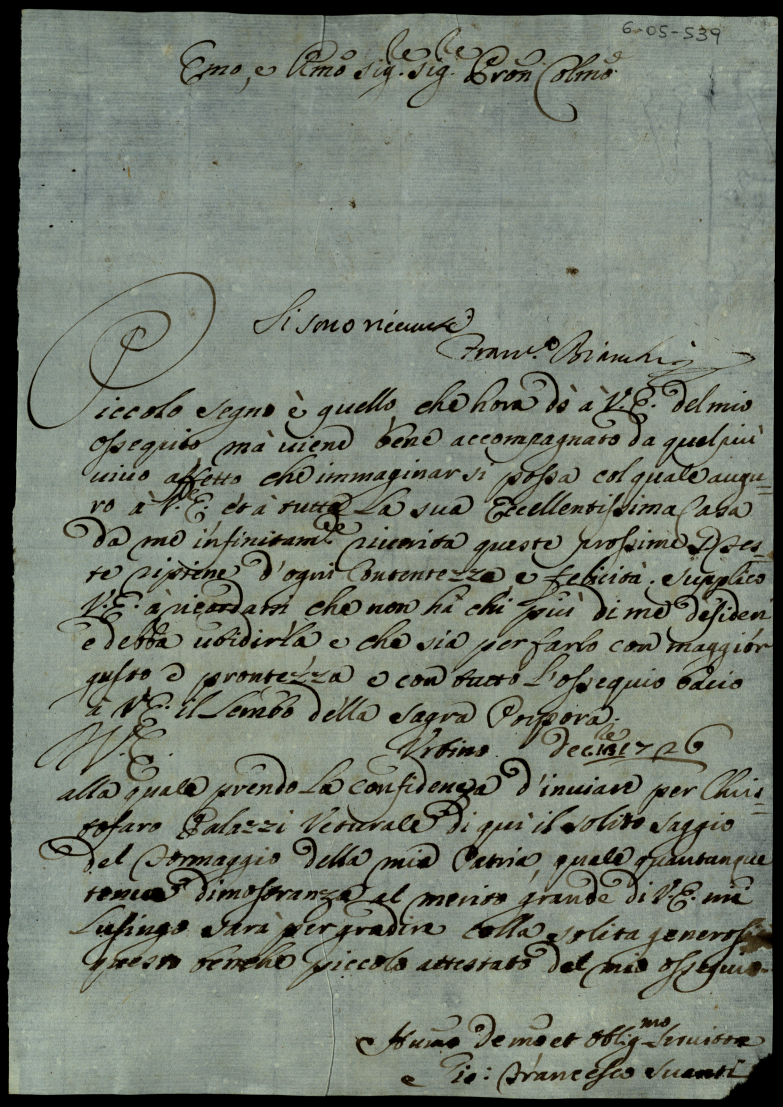 6-05-539
Emo, e Rmo Sig.re Sig.re Pron Colmo
Si sono ricevute
Fran.co Bianchi
Piccolo segno è quello che hora dò à V.E. del mio
ossequio mà viene bene accompagnato da quel più
vivo affetto che immaginar si possa col quale augu-
ro à V.E. et à tutta La sua Eccellentissima Casa
da me infinitam.te riverita queste prossime Fes-
te ripiene d'ogni Contentezza e felicità. Supplico
V.E. à ricordarsi che non hà chi più di me desideri
e debba ubidirla e che sia per farlo con maggior
gusto e prontezza e con tutto L'ossequio bacio
à V.E. il Lembo della Sagra Porpora.
V.E. Urbino dec.re 1726
alla quale prendo La confidenza d'inviare per Chris-
tofaro Palazzi Vetturale di qui il solito saggio
del Formaggio della mia Patria, quale quantunque
tenue dimostranza al merito grande di V.E. mi
Lusingo sarà per gradire colla solita generosità
questo benche piccolo attestato del mio ossequio
Humo Devmo et Oblig.mo Servitore
Gio: Francesco